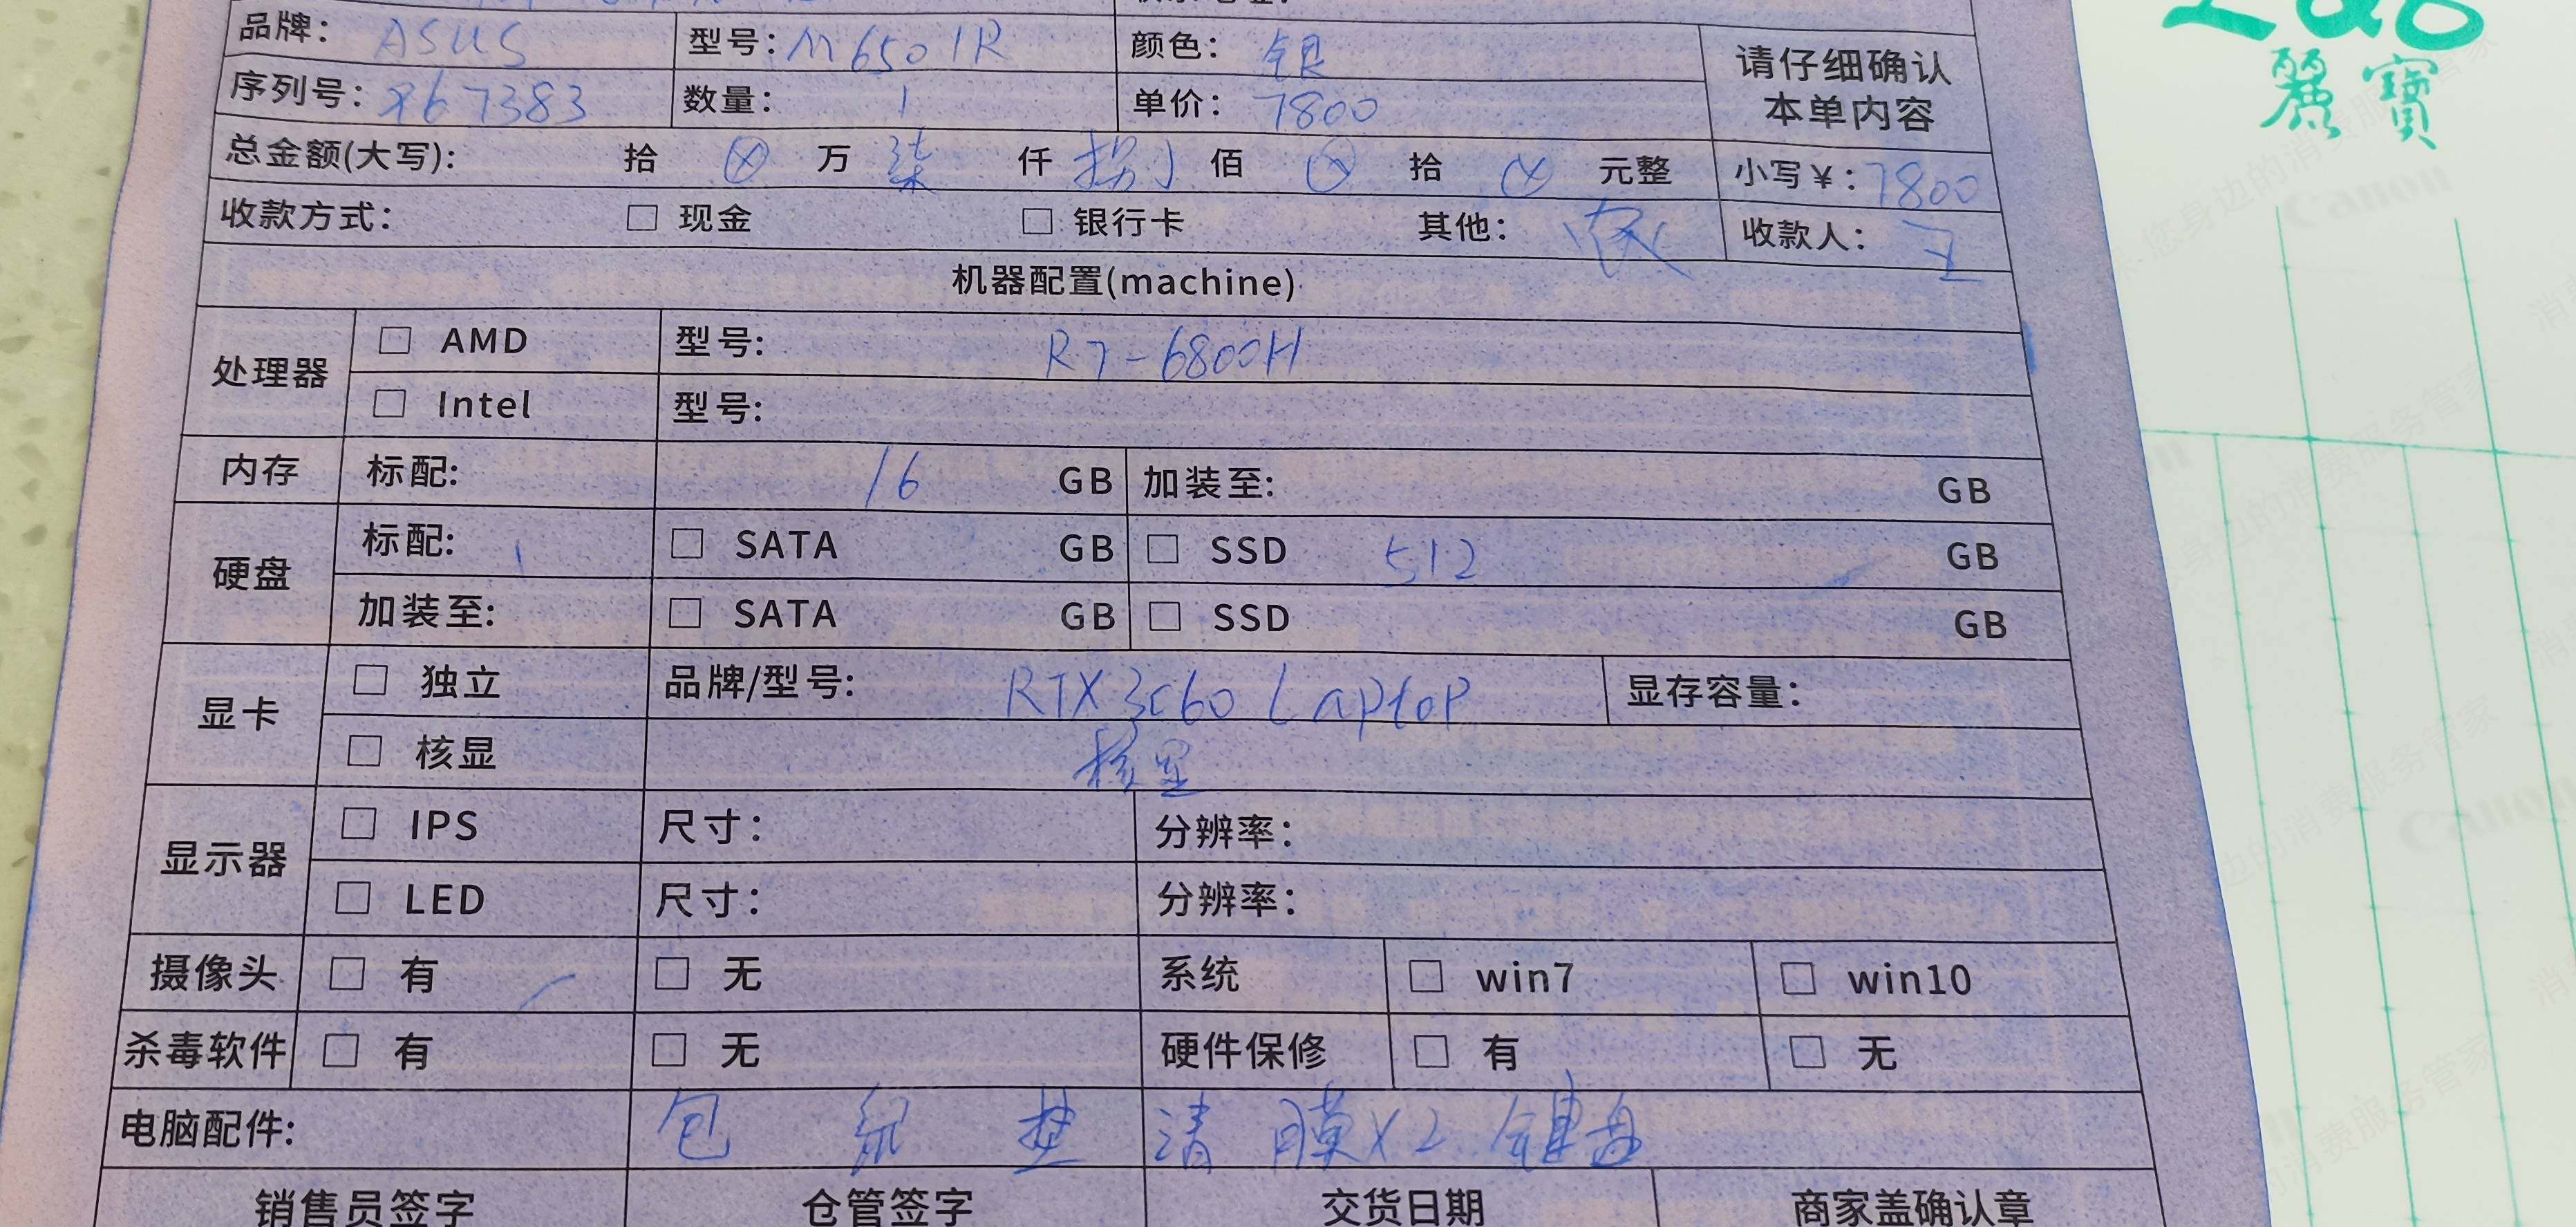 品牌: ASUS 型号: M6501R 颜色: 银 请仔细确认
序列号: 867383 数量: 1 单价: 7800 本单内容
总金额(大写): 拾 ⊗ 万 柒 仟 捌 佰 ⊗ 拾 ⊗ 元整 小写¥: 7800
收款方式: □ 现金 □ 银行卡 其他: 收款人: 王
机器配置(machine)
处理器 □ AMD 型号: R7-6800H
□ Intel 型号:
内存 标配: 16 GB 加装至: GB
硬盘 标配: □ SATA GB □ SSD 512 GB
加装至: □ SATA GB □ SSD GB
显卡 □ 独立 品牌/型号: RTX3060 Laptop 显存容量:
□ 核显 核显
显示器 □ IPS 尺寸: 分辨率:
□ LED 尺寸: 分辨率:
摄像头 □ 有 □ 无 系统 □ win7 □ win10
杀毒软件 □ 有 □ 无 硬件保修 □ 有 □ 无
电脑配件: 包 鼠 垫 清 膜X2 键盘
销售员签字 仓管签字 交货日期 商家盖确认章
麗寶
Canon
您身边的消费服务管家
Canon